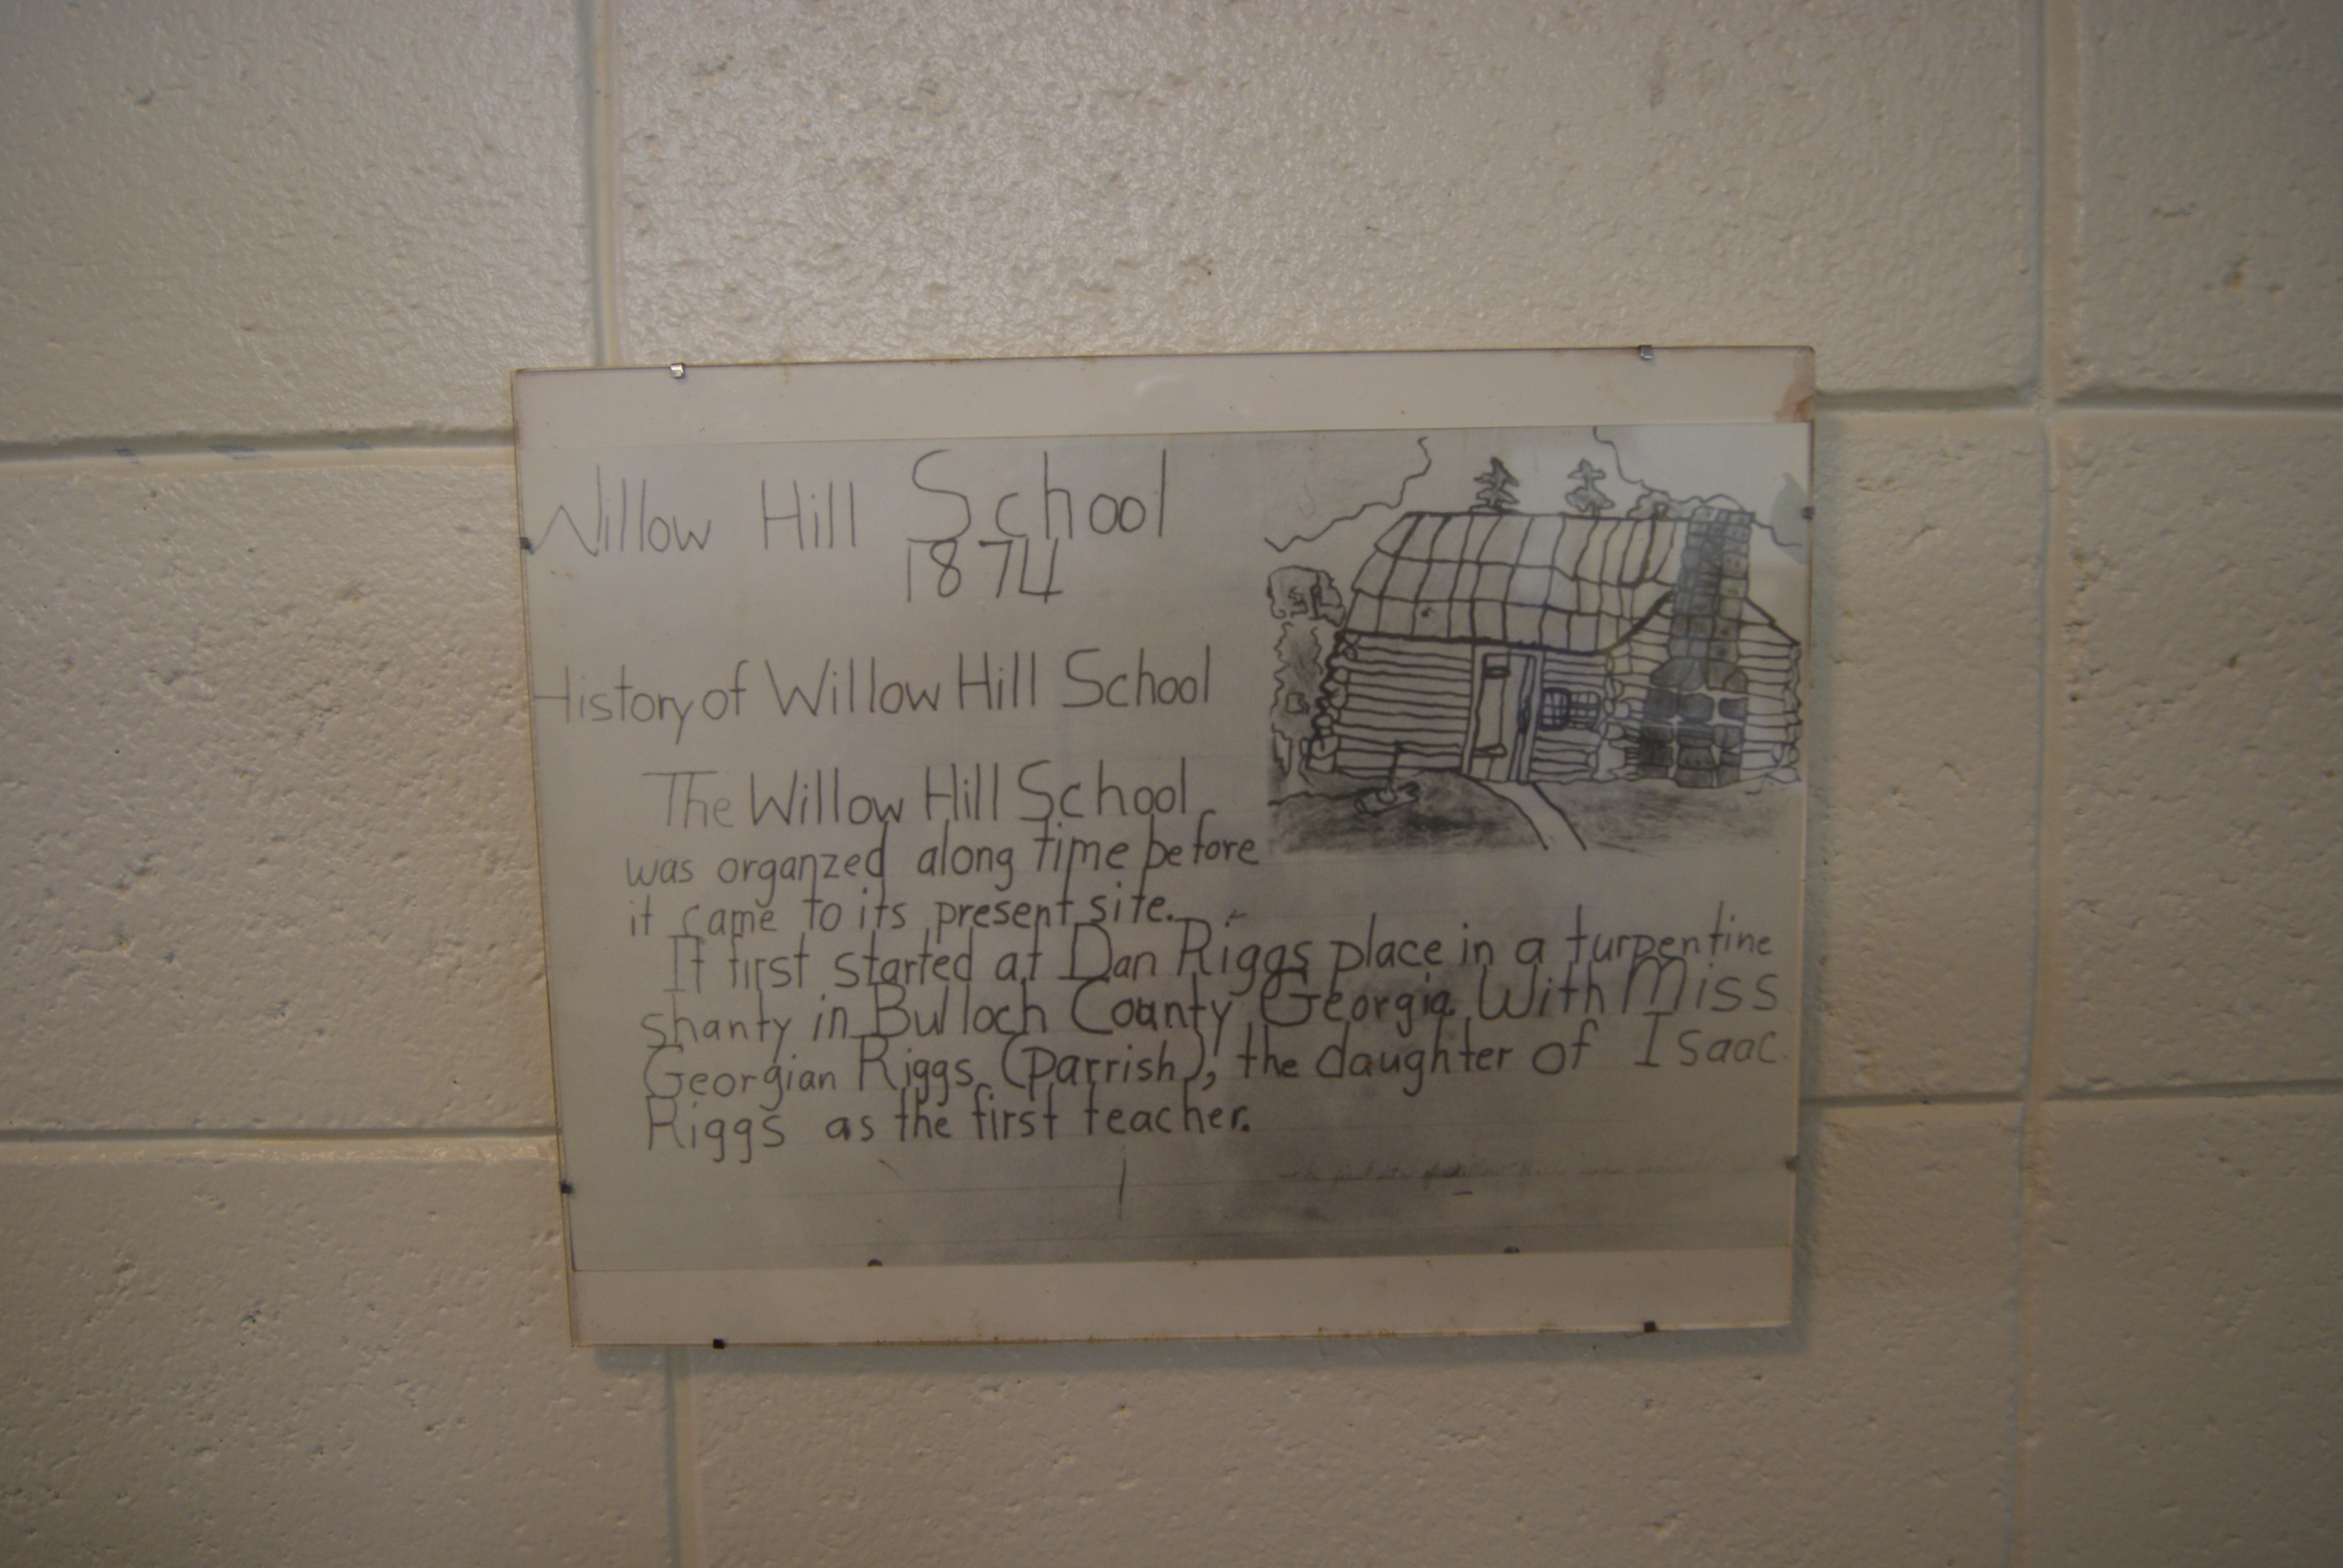 Willow Hill School
1874
History of Willow Hill School
The Willow Hill School
was organzed along time before
it came to its present site.
It first started at Dan Riggs place in a turpentine
shanty in Bulloch County Georgia. With Miss
Georgian Riggs (parrish), the daughter of Isaac
Riggs as the first teacher.